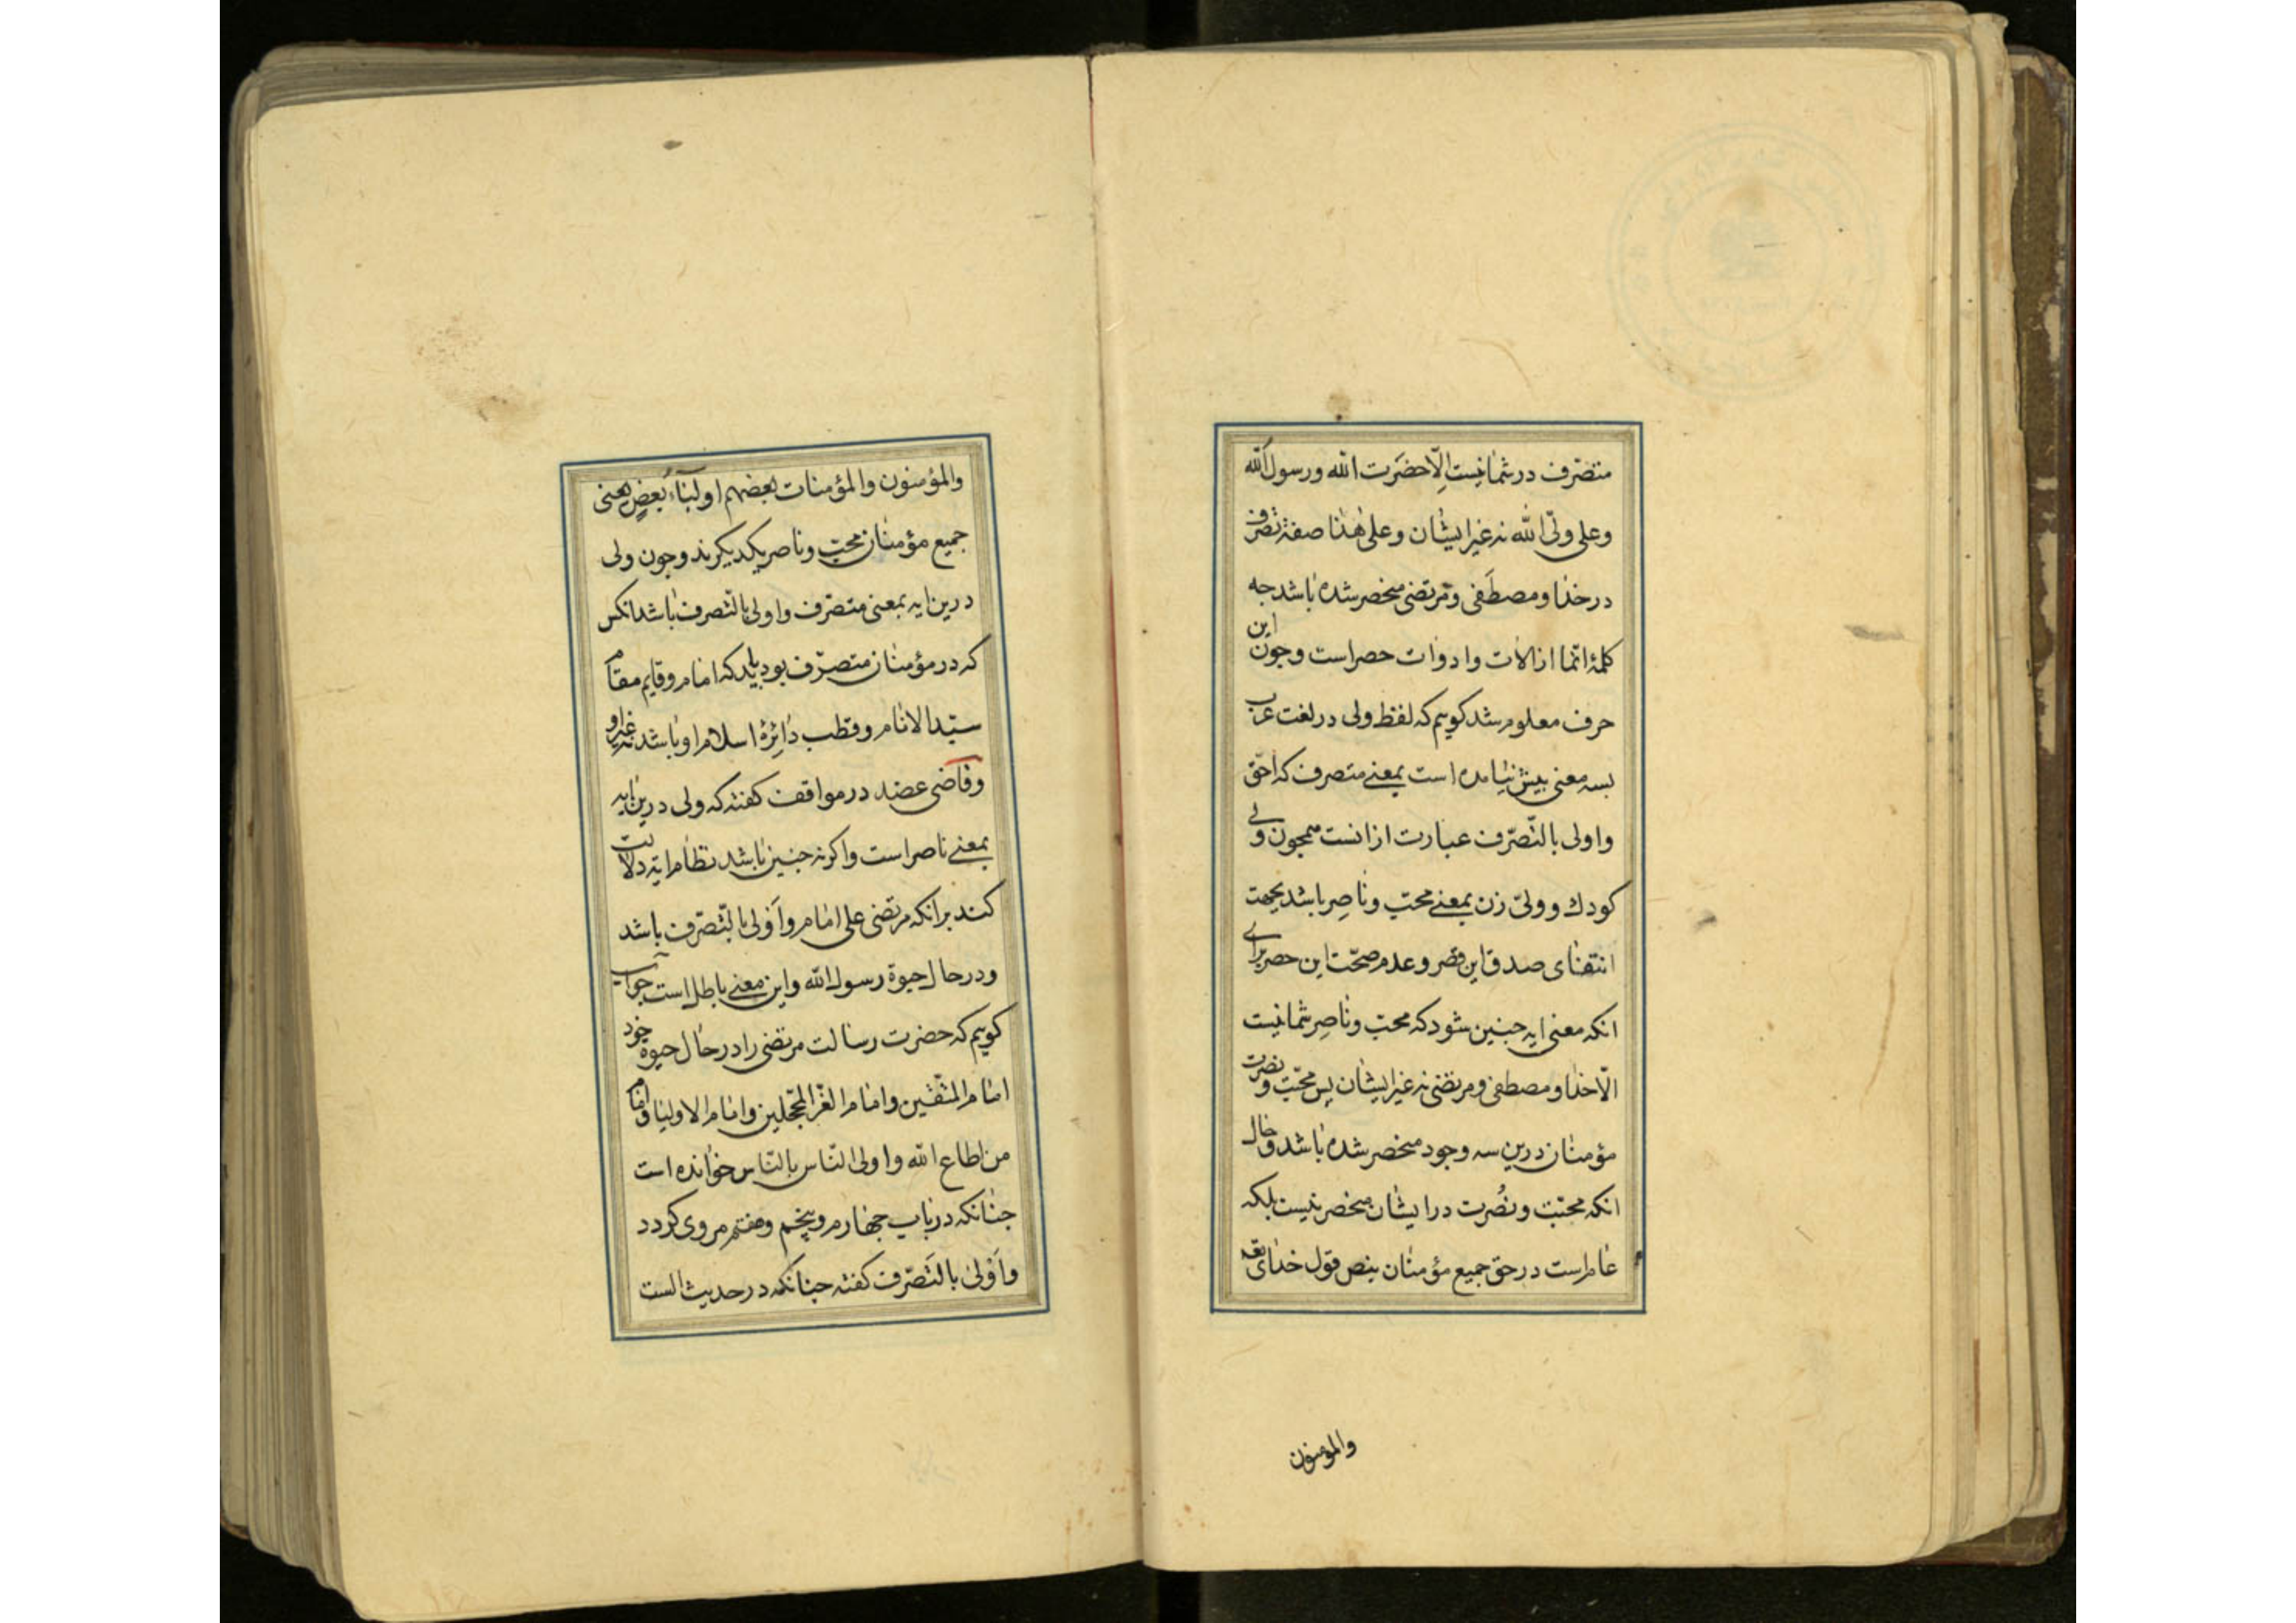 متصرّف در شما نیست الّا حضرت الله و رسول الله
و علی ولیّ الله نه غیر ایشان و علی هذا صفة تصرف
در خدا و مصطفی و مرتضی منحصر شده باشد جه
کلمۀ انّما از الات و ادوات حصر است و جون این
حرف معلوم شد کوییم که لفظ ولی در لغت عرب
بسه معنی بیش نیامده است بمعنی متصرف که احقّ
و اولی بالتّصرّف عبارت ازانست همجون ولی
کودك و ولیّ زن بمعنی محبّ و ناصر باشد بجهت
انتفای صدق این قصر و عدم صحّت این حصر برای
انکه معنی ایه جنین شود که محبّ و ناصر شما نیست
الّا خدا و مصطفی و مرتضی نه غیر ایشان پس محبّت و نصرت
مؤمنان درین سه وجود منحصر شده باشد و حال
انکه محبّت و نُصرت در ایشان منحصر نیست بلکه
عام است در حق جمیع مؤمنان بنص قول خدای تعه
والمومنون
والمؤمنون والمؤمنات بعضهم اولیآء بعضٍ یعنی
جمیع مؤمنان محبّ و ناصر یکدیکرند و جون ولی
درین ایه بمعنی متصرّف و اولی بالتّصرف باشد انکس
که در مؤمنان متصرّف بود باید که امام و قایم مقام
سیّد الانام و قطب دائرۀ اسلام او باشد نه غیر او
و قاضی عضد در مواقف کفته که ولی درین ایه
بمعنی ناصر است و اکر نه جنین باشد نظام ایة دلالت
کند بر انکه مرتضی علی امام و اَولی بالتّصرّف باشد
و در حال حیوة رسول الله و این معنی باطل است جواب
کوییم که حضرت رسالت مرتضی را در حال حیوة خود
امام المتّقین و امام الغرّ المحّجلین و امام الاولیا و امام
من اطاع الله و اولی الناس بالنّاس خوانده است
جنانکه در باب جهارم و پنجم و هفتم مروی کردد
و اَوْلی بالتَصرّف کفته جنانکه در حدیث الست